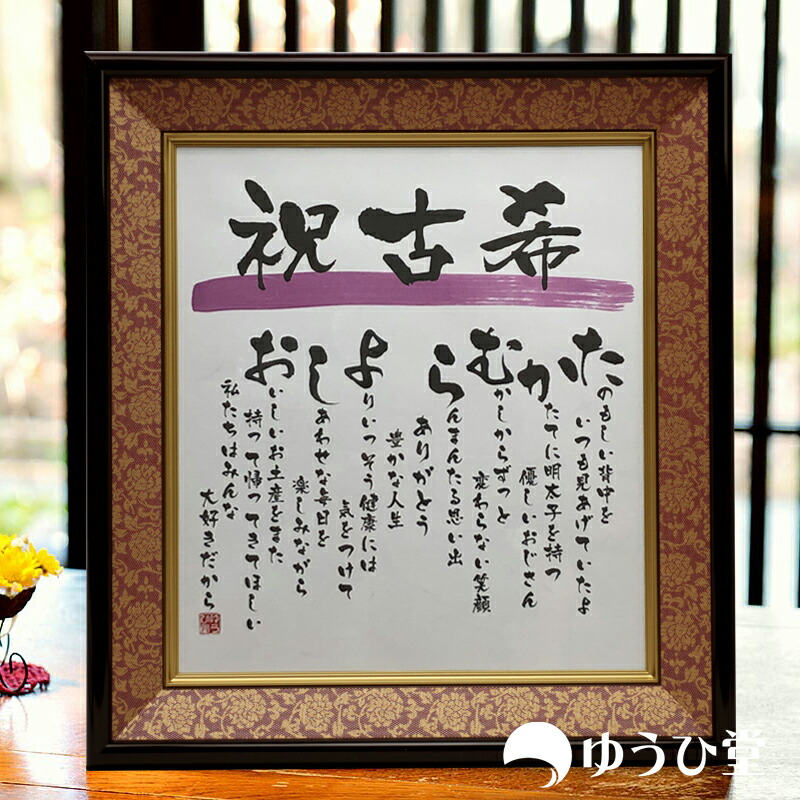 祝古希
たのもしい背中を
いつも見あげていたよ
かたてに明太子を持つ
優しいおじさん
むかしからずっと
変わらない笑顔
らんまんたる思い出
ありがとう
豊かな人生
よりいっそう健康には
気をつけて
しあわせな毎日を
楽しみながら
おいしいお土産をまた
持って帰ってきてほしい
私たちはみんな
大好きだから
ゆうひ堂